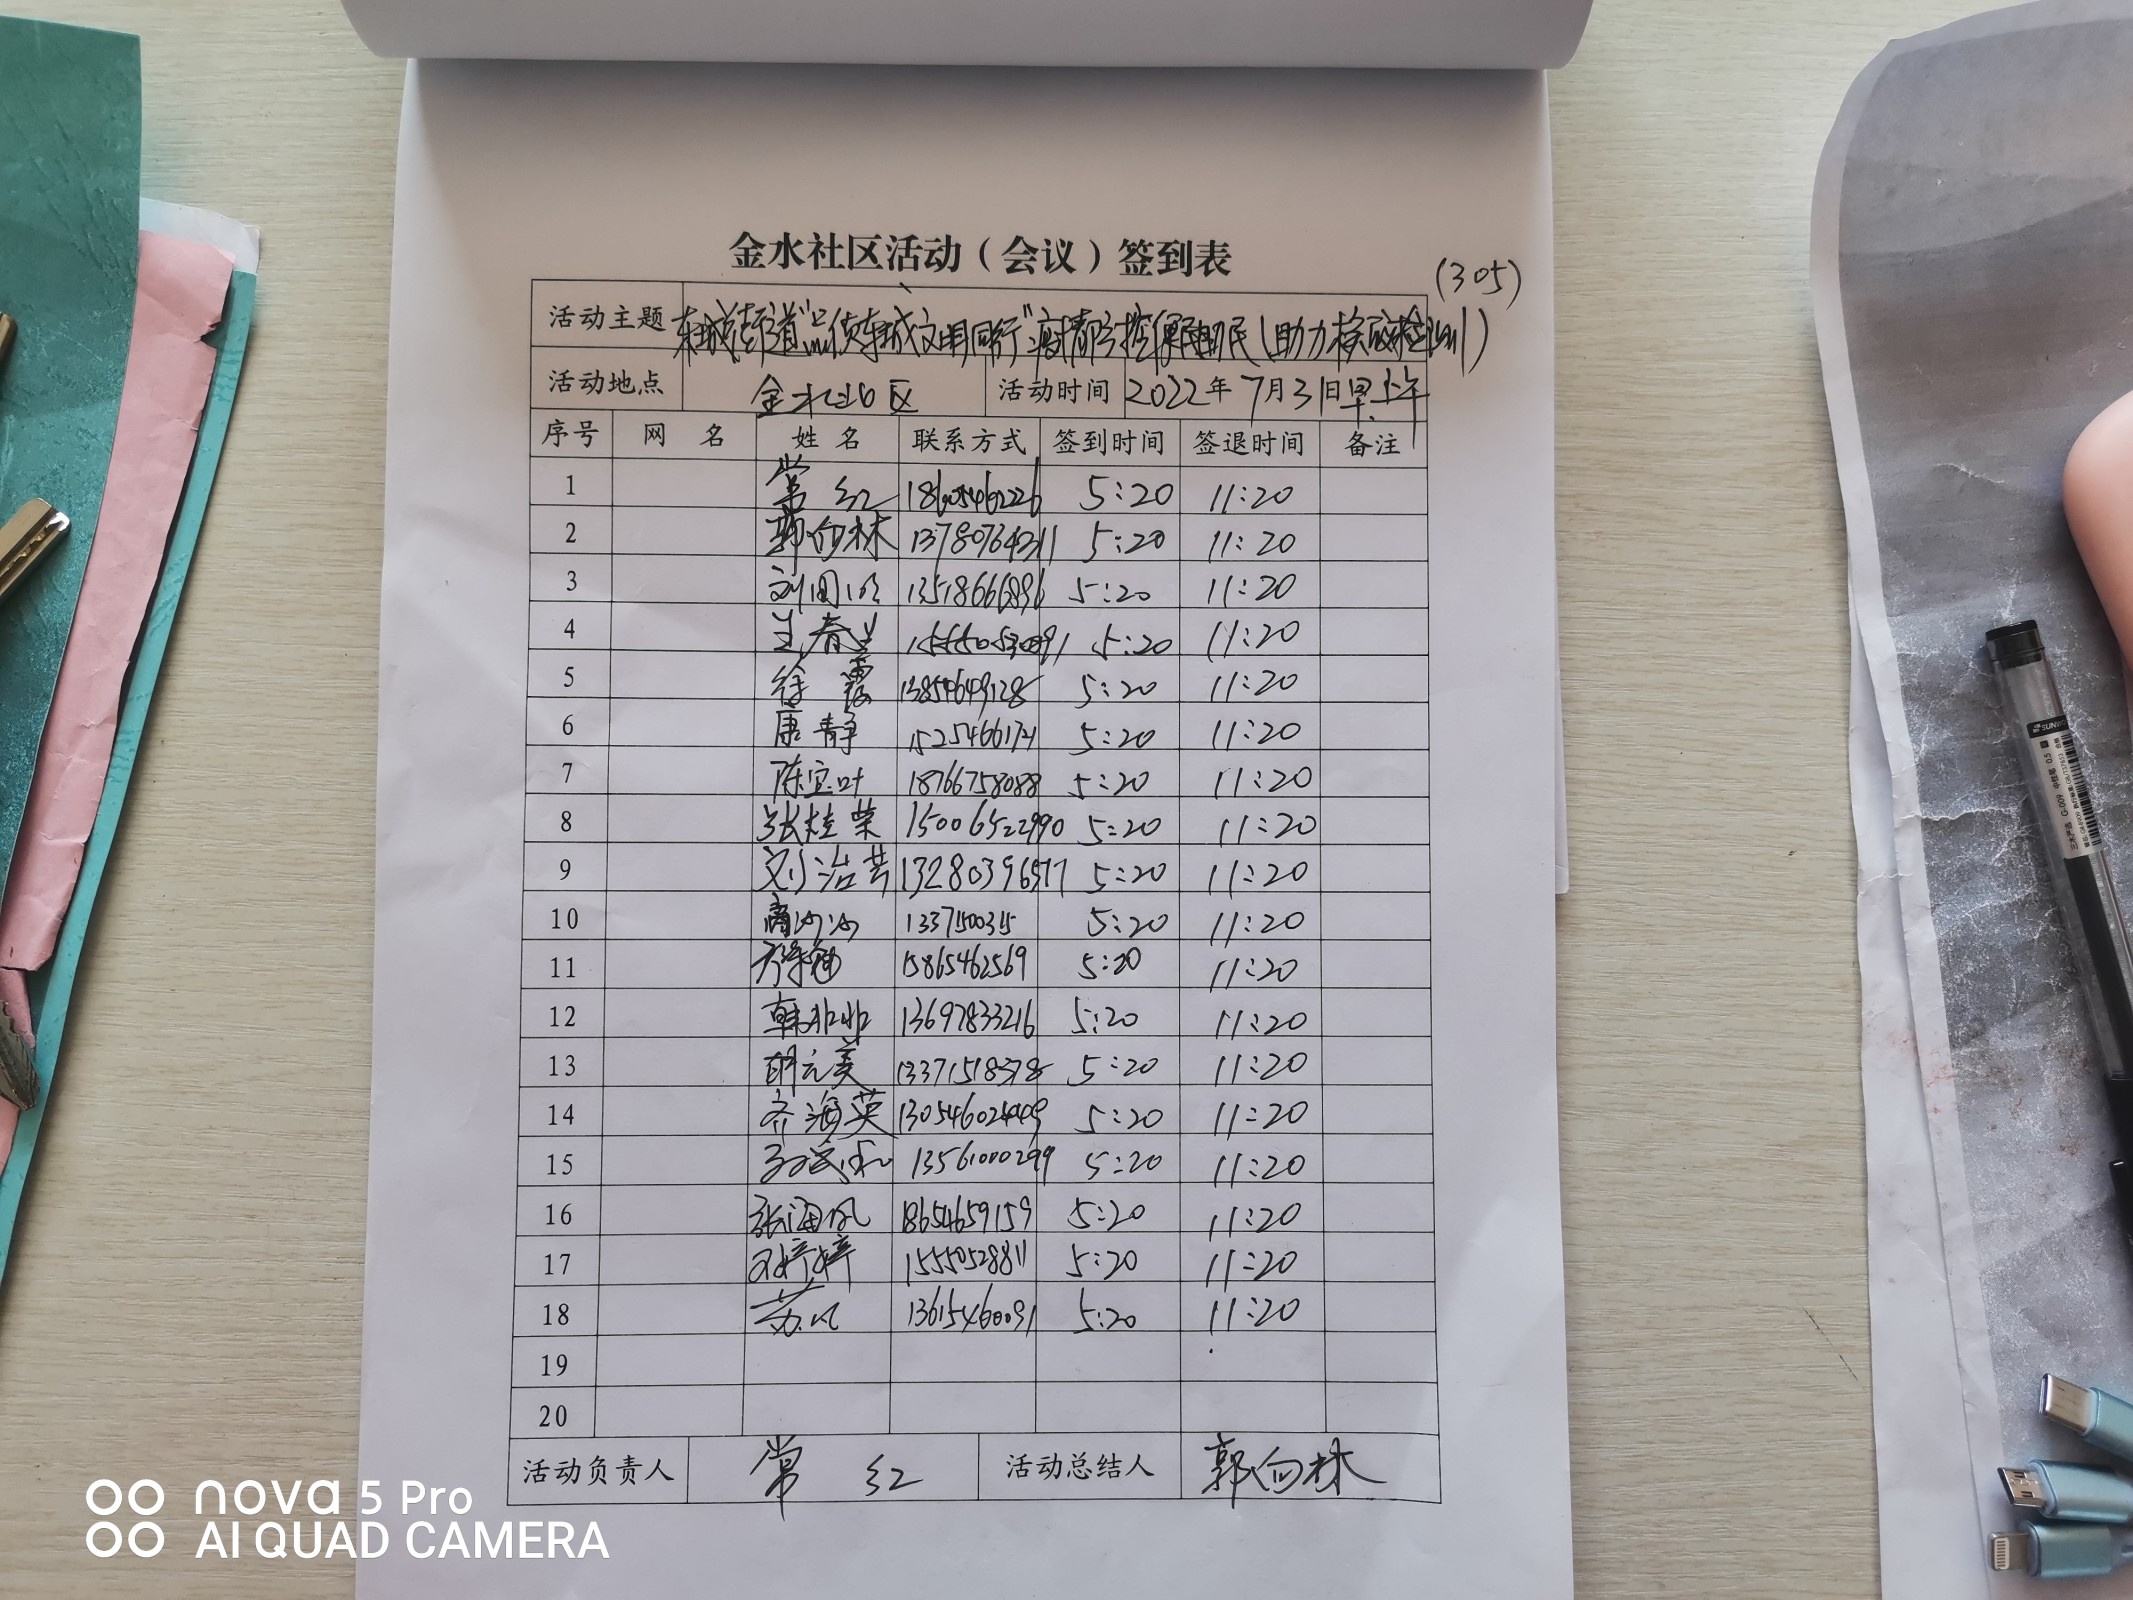 金水社区活动（会议）签到表
(305)
活动主题 东城街道"品质东城文明同行"疫情防控便民助民(助力核酸检测)
活动地点 金水社区 活动时间 2022年7月31日早上午
序号 网 名 姓 名 联系方式 签到时间 签退时间 备注
1 常红 18605462226 5:20 11:20
2 郭向林 13780764311 5:20 11:20
3 5:20 11:20
4 5:20 11:20
5 徐霞 13854649128 5:20 11:20
6 唐静 15254661721 5:20 11:20
7 陈宝叶 18766758088 5:20 11:20
8 张桂荣 15006522990 5:20 11:20
9 13280396577 5:20 11:20
10 5:20 11:20
11 15865462569 5:20 11:20
12 韩非非 13697833216 5:20 11:20
13 胡元美 13371518378 5:20 11:20
14 齐海英 13054602449 5:20 11:20
15 13561000299 5:20 11:20
16 张海凤 18654659159 5:20 11:20
17 15550528811 5:20 11:20
18 苏风 13615460091 5:20 11:20
19
20
活动负责人 常红 活动总结人 郭向林
nova 5 Pro
AI QUAD CAMERA